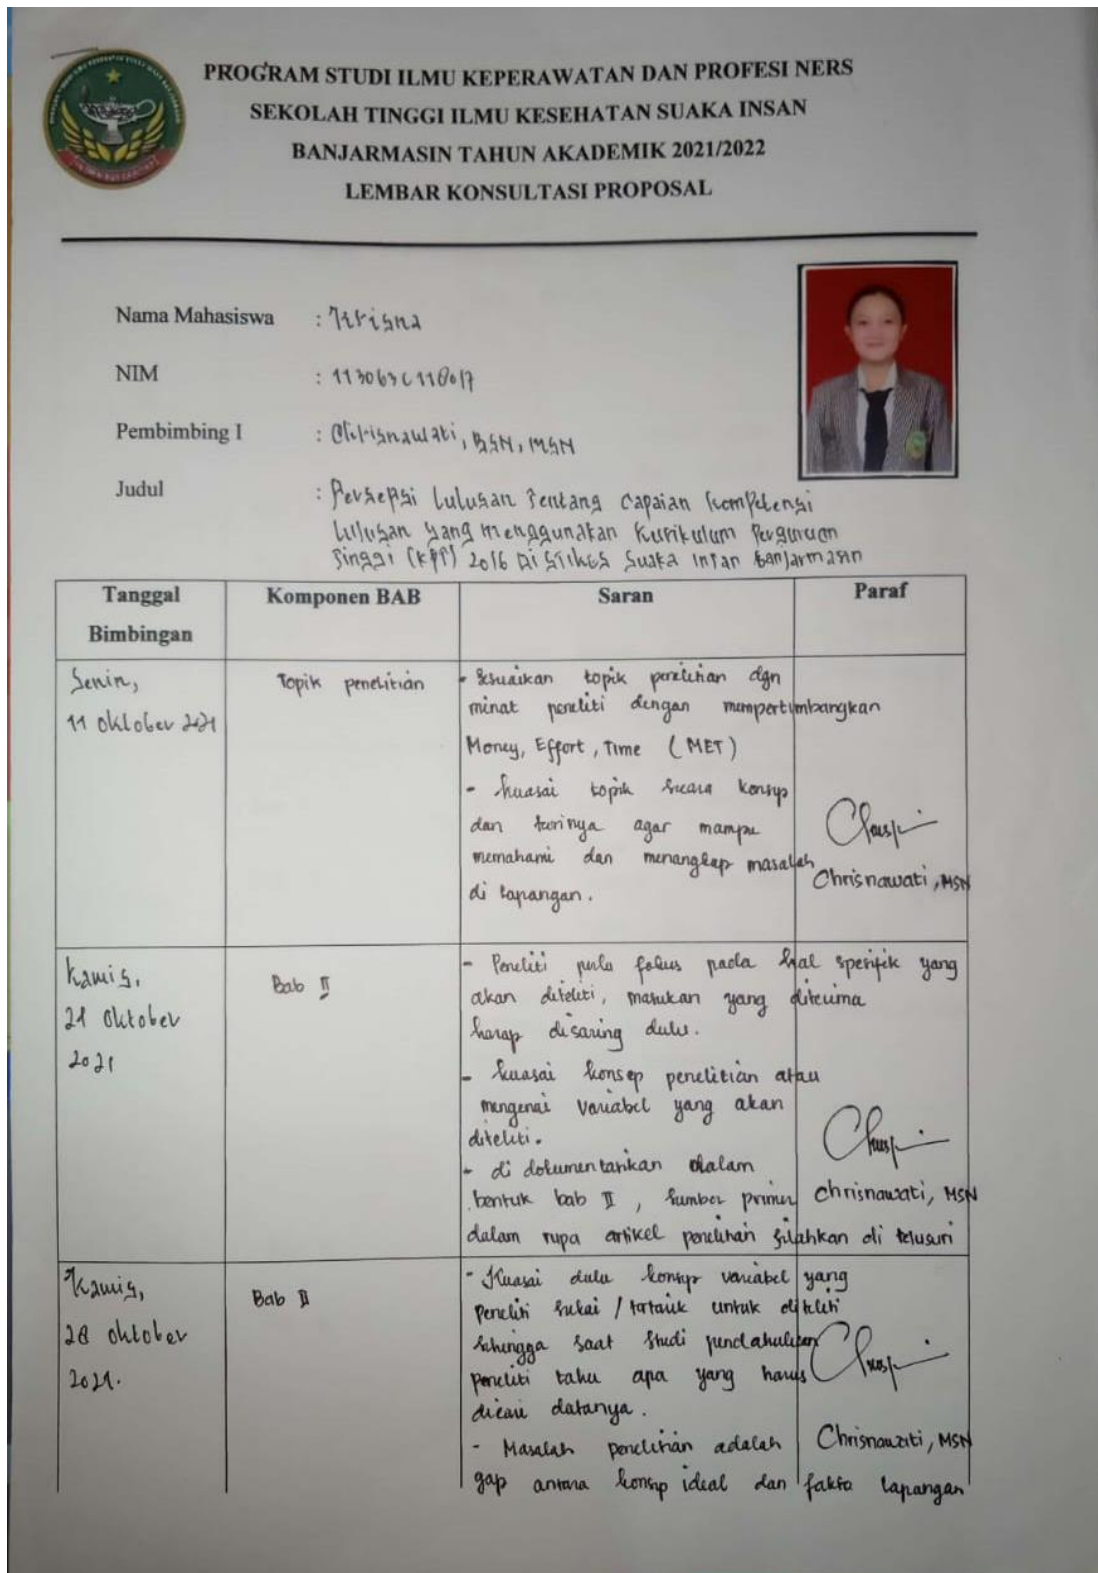 PROGRAM STUDI ILMU KEPERAWATAN DAN PROFESI NERS
SEKOLAH TINGGI ILMU KESEHATAN SUAKA INSAN
BANJARMASIN TAHUN AKADEMIK 2021/2022
LEMBAR KONSULTASI PROPOSAL
Nama Mahasiswa : Krisna
NIM :
Pembimbing I : Chrisnawati, BSN, MSN
Judul : Persepsi Lulusan Tentang Capaian Kompetensi
Lulusan yang menggunakan Kurikulum Perguruan
Tinggi (KPT) 2016 Di Stikes Suaka Insan Banjarmasin
Tanggal Bimbingan Komponen BAB Saran Paraf
Senin,
11 Oktober 2021
Topik penelitian
- Sesuaikan topik penelitian dgn
minat peneliti dengan mempertimbangkan
Money, Effort, Time (MET)
- kuasai topik secara konsep
dan teorinya agar mampu
memahami dan menangkap masalah
di lapangan.
Chrisnawati, MSN
Kamis,
21 Oktober
2021
Bab II
- Peneliti perlu fokus pada hal spesifik yang
akan diteliti, masukan yang diterima
harap disaring dulu.
- kuasai konsep penelitian atau
mengenai variabel yang akan
diteliti.
- di dokumentasikan dalam
bentuk bab II, sumber primer
dalam rupa artikel penelitian silahkan di telusuri
Chrisnawati, MSN
Kamis,
28 oktober
2021.
Bab II
- Kuasai dulu konsep variabel yang
peneliti sukai / tertarik untuk diteliti
sehingga saat studi pendahuluan
peneliti tahu apa yang harus
dicari datanya.
- Masalah penelitian adalah
gap antara konsep ideal dan fakta lapangan
Chrisnawati, MSN